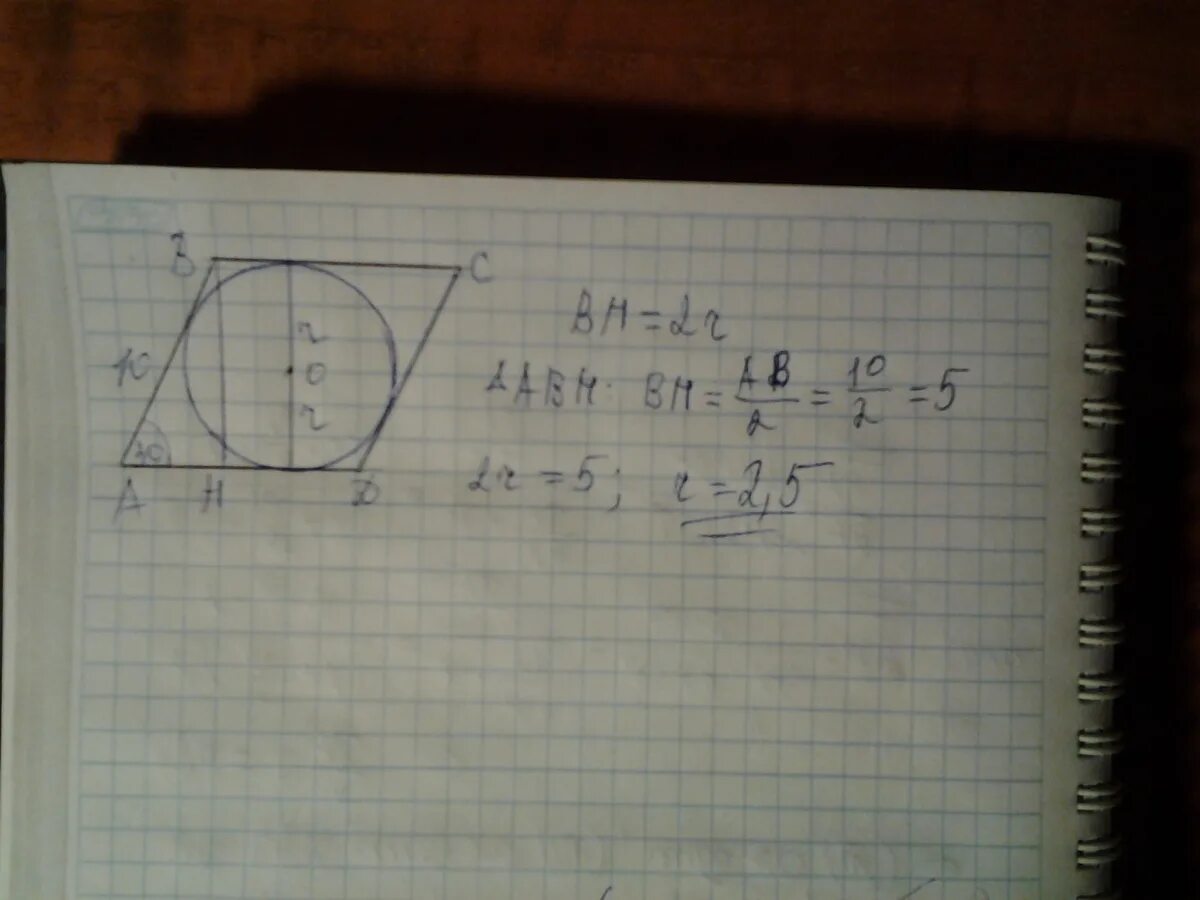 B C
10
r
O
r
30
A H D
BH = 2r
ΔABH: BH = AB/2 = 10/2 = 5
2r = 5; r = 2,5